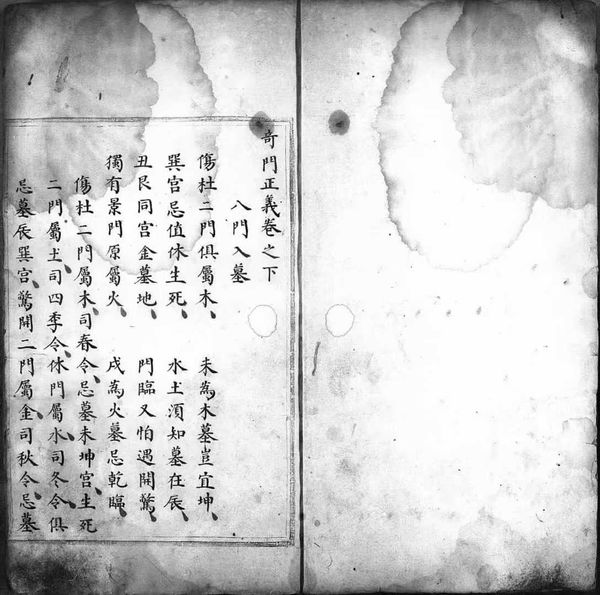 奇門正義卷之下
八門入墓
傷杜二門俱屬木、未爲木墓豈宜坤、
巽宮忌值休生死、水土須知墓在辰、
丑艮同宮金墓地、門臨又怕遇開驚、
獨有景門原屬火、戌爲火墓忌乾臨、
傷杜二門屬木、司春令、忌墓未坤宮、生死
二門屬土、司四季令、休門屬水、司冬令、俱
忌墓辰巽宮、驚開二門屬金、司秋令、忌墓